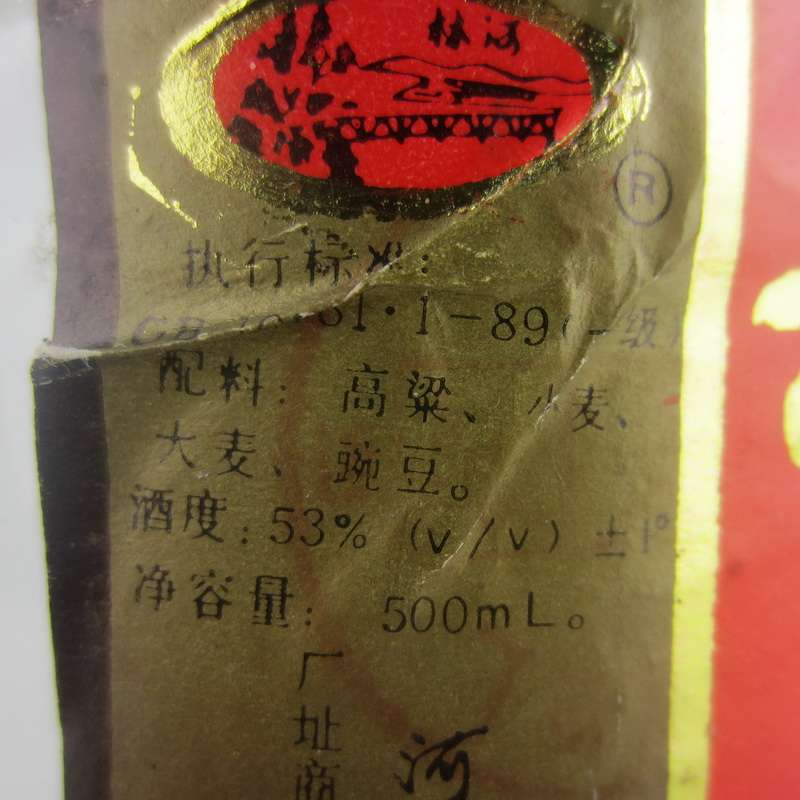 林河
®
执行标准:
GB 10781·1-89(一级)
配料: 高粱、小麦、
大麦、豌豆。
酒度: 53% (v/v) ±1°
净容量: 500mL。
厂址商
河